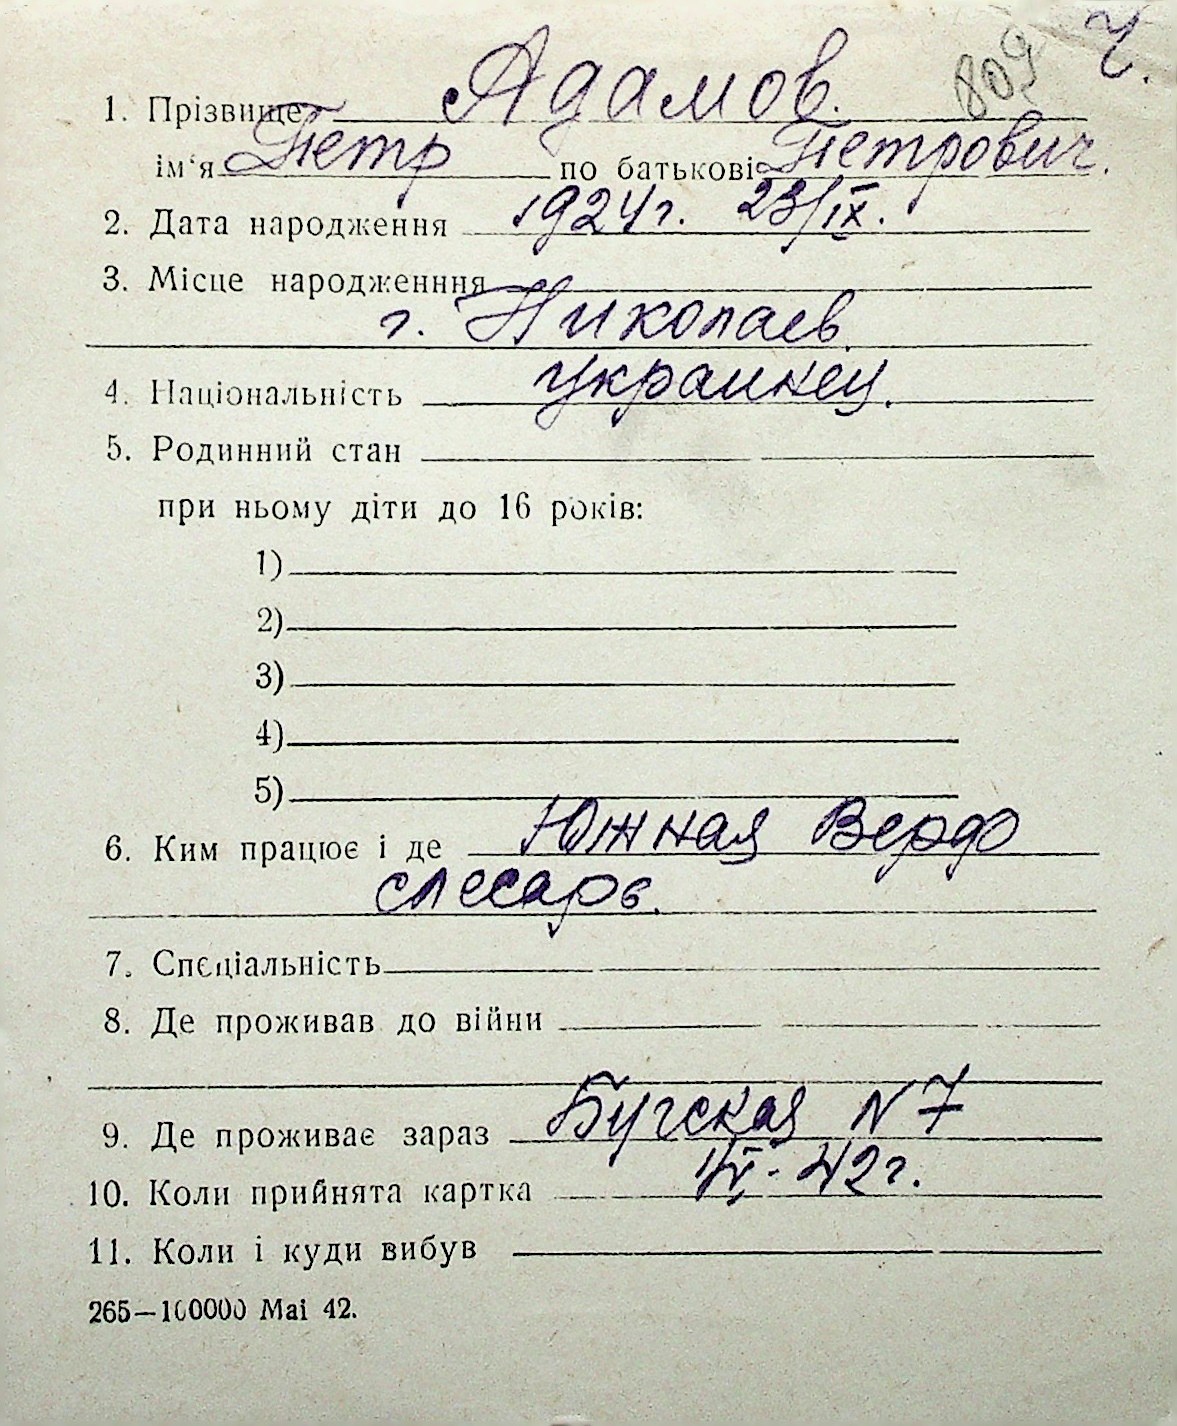 809 Ч.
1. Прізвище Адамов.
ім'я Петр по батькові Петрович.
2. Дата народження 1924 г. 23/IX.
3. Місце народженння
г. Николаев.
4. Національність украинец.
5. Родинний стан
при ньому діти до 16 років:
1)
2)
3)
4)
5)
6. Ким працює і де Южная Верфо
слесарь.
7. Спеціальність
8. Де проживав до війни
9. Де проживає зараз Бугская N 7
10. Коли прийнята картка 42 г.
11. Коли і куди вибув
265—100000 Mai 42.